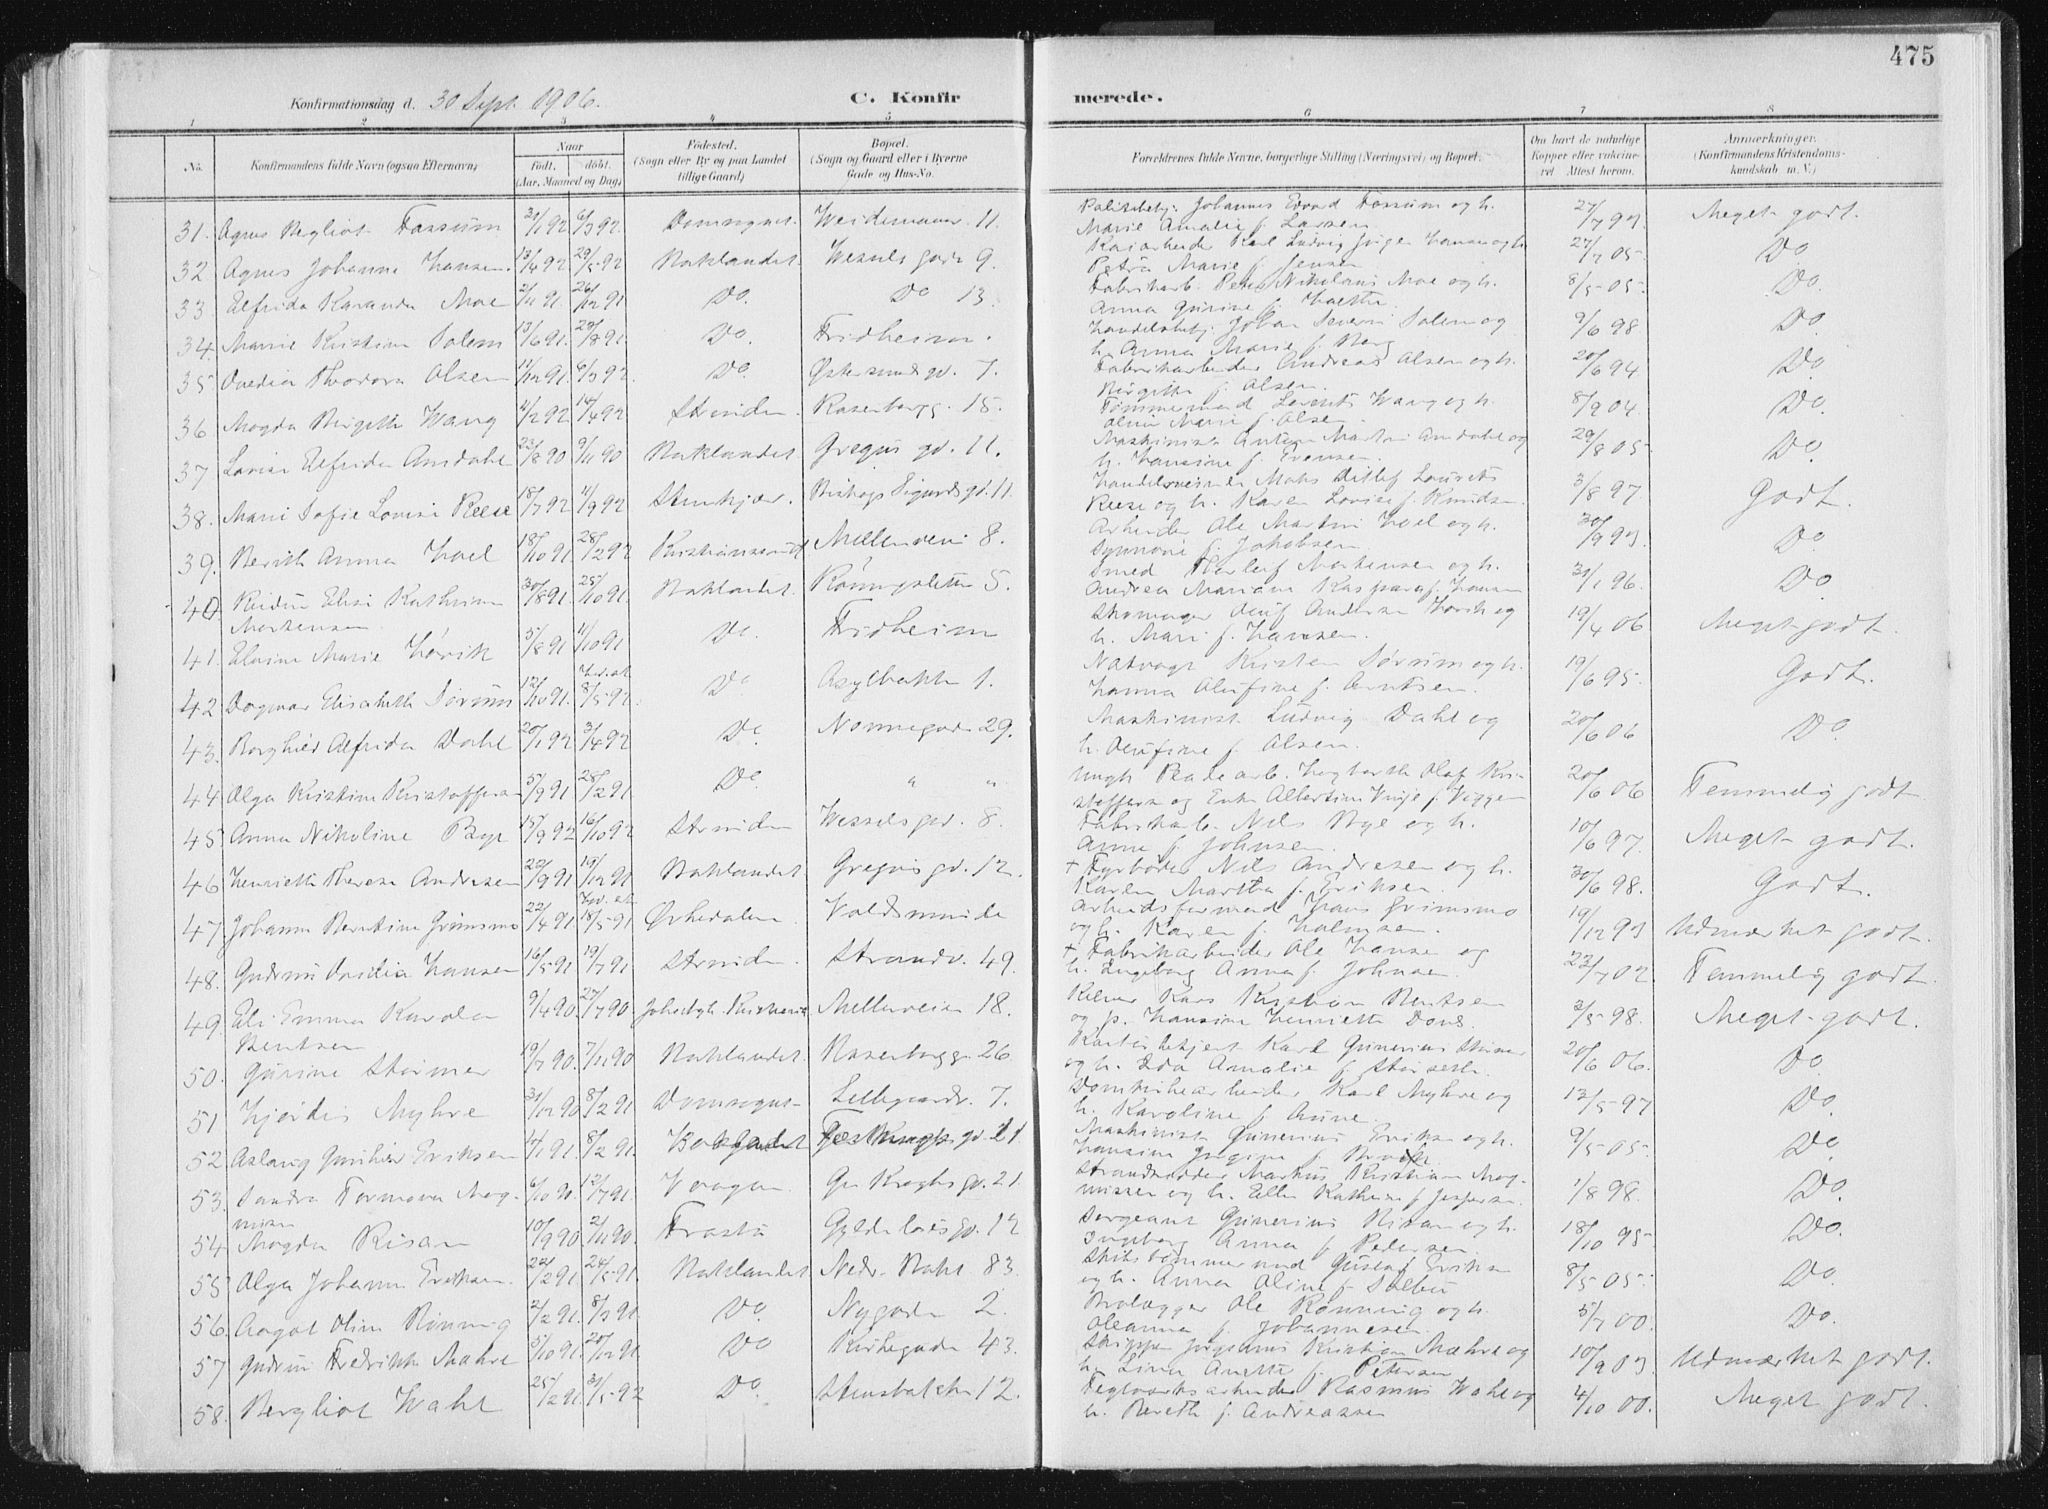 475
Konfirmationsdag d. 30 Sept. 1906. C. Konfirmerede.
1 2 3 4 5 6 7 8
No. Konfirmandens fulde Navn (ogsaa Efternavn) Naar født. døbt. (Aar, Maaned og Dag) Fødested. (Sogn eller By og paa Landet tillige Gaard) Bopæl. (Sogn og Gaard eller i Byerne Gade og Hus-No. Forældrenes fulde Navne, borgerlige Stilling (Næringsvei) og Bopæl. Om havt de naturlige Kopper eller vakcineret. Attest herom. Anmærkninger. (Konfirmandens Kristendomskundskab m. V.)
31. Agnes Bergliot Fossum 21/1 92 6/3 92 Domsognet. 11. Johannes Edvard Fossum og h. Marie Amalie f. Larsen 27/7 93 Meget godt.
32 Agnes Johanne Hansen. 13/4 92 29/5 92 Baklandet. Wessels gade 9. Karl Ludvig Hansen og h. Petra Marie f. Jensen 27/7 05. Do
33 Elfrida Moe 2/11 91 26/12 91 Do. Do 13. Fabrikarb. Peter Nikolaus Moe og h. Anna Gurine f. 8/5 05. Do.
34. Marie Kristine Solem 13/6 91. 29/8 91 Do. Fridheim. Handelsbetj. Johan Severin Solem og h. Anna Marie f. Berg 9/6 98 Do
35 Ovedia Theodora Olsen 11/12 91. 6/3 92. Do. Østersunds gd. 7. Fabrikarbeider Andreas Olsen og h. Birgitte f. Olsen 20/6 94 Do.
36 Magda Birgitte Wang 4/2 92 14/4 92 Strinden. Rosenborgg. 15. Tømmermand Lorents Wang og h. Oline Marie f. Olsen 8/9 04. Do.
37 Lovise Elfrida Amdahl 23/8 90 9/11 90 Baklandet Gregus gd. 11. Maskinist Anton Martin Amdahl og h. Hansine f. Evensen. 29/8 05 Do.
38. Marie Sofie Lovise Reese 18/7 92 11/9 92 Stenkjær. Bishop Sigurds gd. 11 Mads Ditlef Lourents Reese og h. Karen Lovise f. Knudsen. 3/8 97 Godt.
39. Berith Anna Hoel 18/10 91. 28/2 92 Kristianssund Møllenveien 8. Arbeider Ole Martin Hoel og h. Synnøve f. Jakobsen. 30/9 93 Do
40 Reidun Elise Kathrine Mortensen 30/8 91. 25/10 91. Baklandet. Rønningsletten 5. Smed Thorleif Mortensen og h. Andrea Mariane Kaspara f. Hansen 31/1 96. Do
41. Elvine Marie Høvik 5/8 91 11/10 91 Do. Fridheim Skomager Oluf Andersen Høvik og h. Marie f. Hansen. 19/4 06 Meget godt.
42 Dagmar Elisabeth Sørum 12/10 91. 8/5 92. Do Asylbakken 1. Natvagt Kristen Sørum og h. Hanna Olufine f. Arntsen. 19/6 95. Godt.
43. Borghild Alfrida Dahl 20/1 92 3/4 92 Do. Nonnegaden 29. Maskinist Ludvig Dahl og h. Olufine f. Olsen. 20/6 06 Do.
44 Olga Kristine Kristoffersen 5/9 91 28/2 91 Do. " " Ungk. Hagbarth Olaf Kristoffersen og Enke Albertine Vinje f. Viggen 20/6 06 Temmelig godt
45 Anna Nikoline Bye 15/9 92 16/10 92 Strinden Wesselsgd. 8. Nils Bye og h. Anne f. Johnsen. 10/6 97. Meget godt.
46 Henriette Therese Andresen 22/9 91 19/12 91 Baklandet Gregusgd. 12. + Fyrbøder Nils Andresen og h. Karen Martha f. Eriksen. 30/6 98. Godt.
47 Johanne Berntine Grimsmo 22/4 91 18/5 91 Ørkedalen Voldsminde Arbeidsformand Hans Grimsmo og h. Karen f. Holmsen. 19/12 93 Udmærket godt.
48. Gudrun Ovidia Hansen 16/5 91 19/7 91 Strinden. Strandv. 49. + Fabrikarbeider Ole Hansen og h. Ingeborg Anna f. Johnsen. 22/7 02 Temmelig godt.
49. Eli Emma Karoline Berntsen 9/4 90. 27/7 90. Kristiania Mellemveien 18. Lars Kristian Berntsen og p. Hansine Henriette 3/5 98. Meget godt.
50. Gurine Størmer 19/7 90. 7/11 90 Baklandet. Rosenborgg. 26 Karl Gunerius Størmer og h. Ida Amalie f. Storseth. 20/6 06. Do
51 Hjørdis Myhre 31/12 90 8/2 91 Domsognet Lillegaardsv. 7. Karl Myhre og h. Karoline f. Aune. 12/5 97 Do.
52 Aslaug Gunhild Eriksen 4/1 91. 8/2 91 Baklandet Festningsgd. 21. Maskinist Gunerius Eriksen og h. Hansine 9/5 05. Do
53. Sandra Magnussen 6/10 90. 12/7 91. Gr. Kroghs gd. 21. Markus Kristian Magnussen og h. Ellen Kathrine f. Jespersen. 1/8 98. Do.
54 Magda Risan 10/9 90. 2/11 90. Frosta Gyldenløvsgd. 12 Sergeant Gunerius Risan og h. Ingeborg Anna f. Pedersen 18/10 95 Do.
55 Olga Johanne Eriksen. 22/2 91. 24/5 91. Baklandet Nedr. Bakl. 83. Gustaf Eriksen og h. Anna Oline f. Selbu 8/5 05. Do.
56. Aagot Oline Rønning 2/2 91. 8/3 91 Do. Nygade 2. Brolægger Ole Rønning og h. Oleanna f. Johannesen. 5/7 00. Do.
57 Gudrun Fredrikke Mæhre 5/10 91. 20/12 91 Do Kirkegade 43. Skipper Kristian Mæhre og h. Lina Anette f. Petersen 10/9 03 Udmærket godt.
58. Bergliot Wahl 25/2 91. 31/5 92 Do. Stensbakken 12. Teglværksarbeider Rasmus Wahl og h. Bereth f. Andreassen 4/10 00. Meget godt.